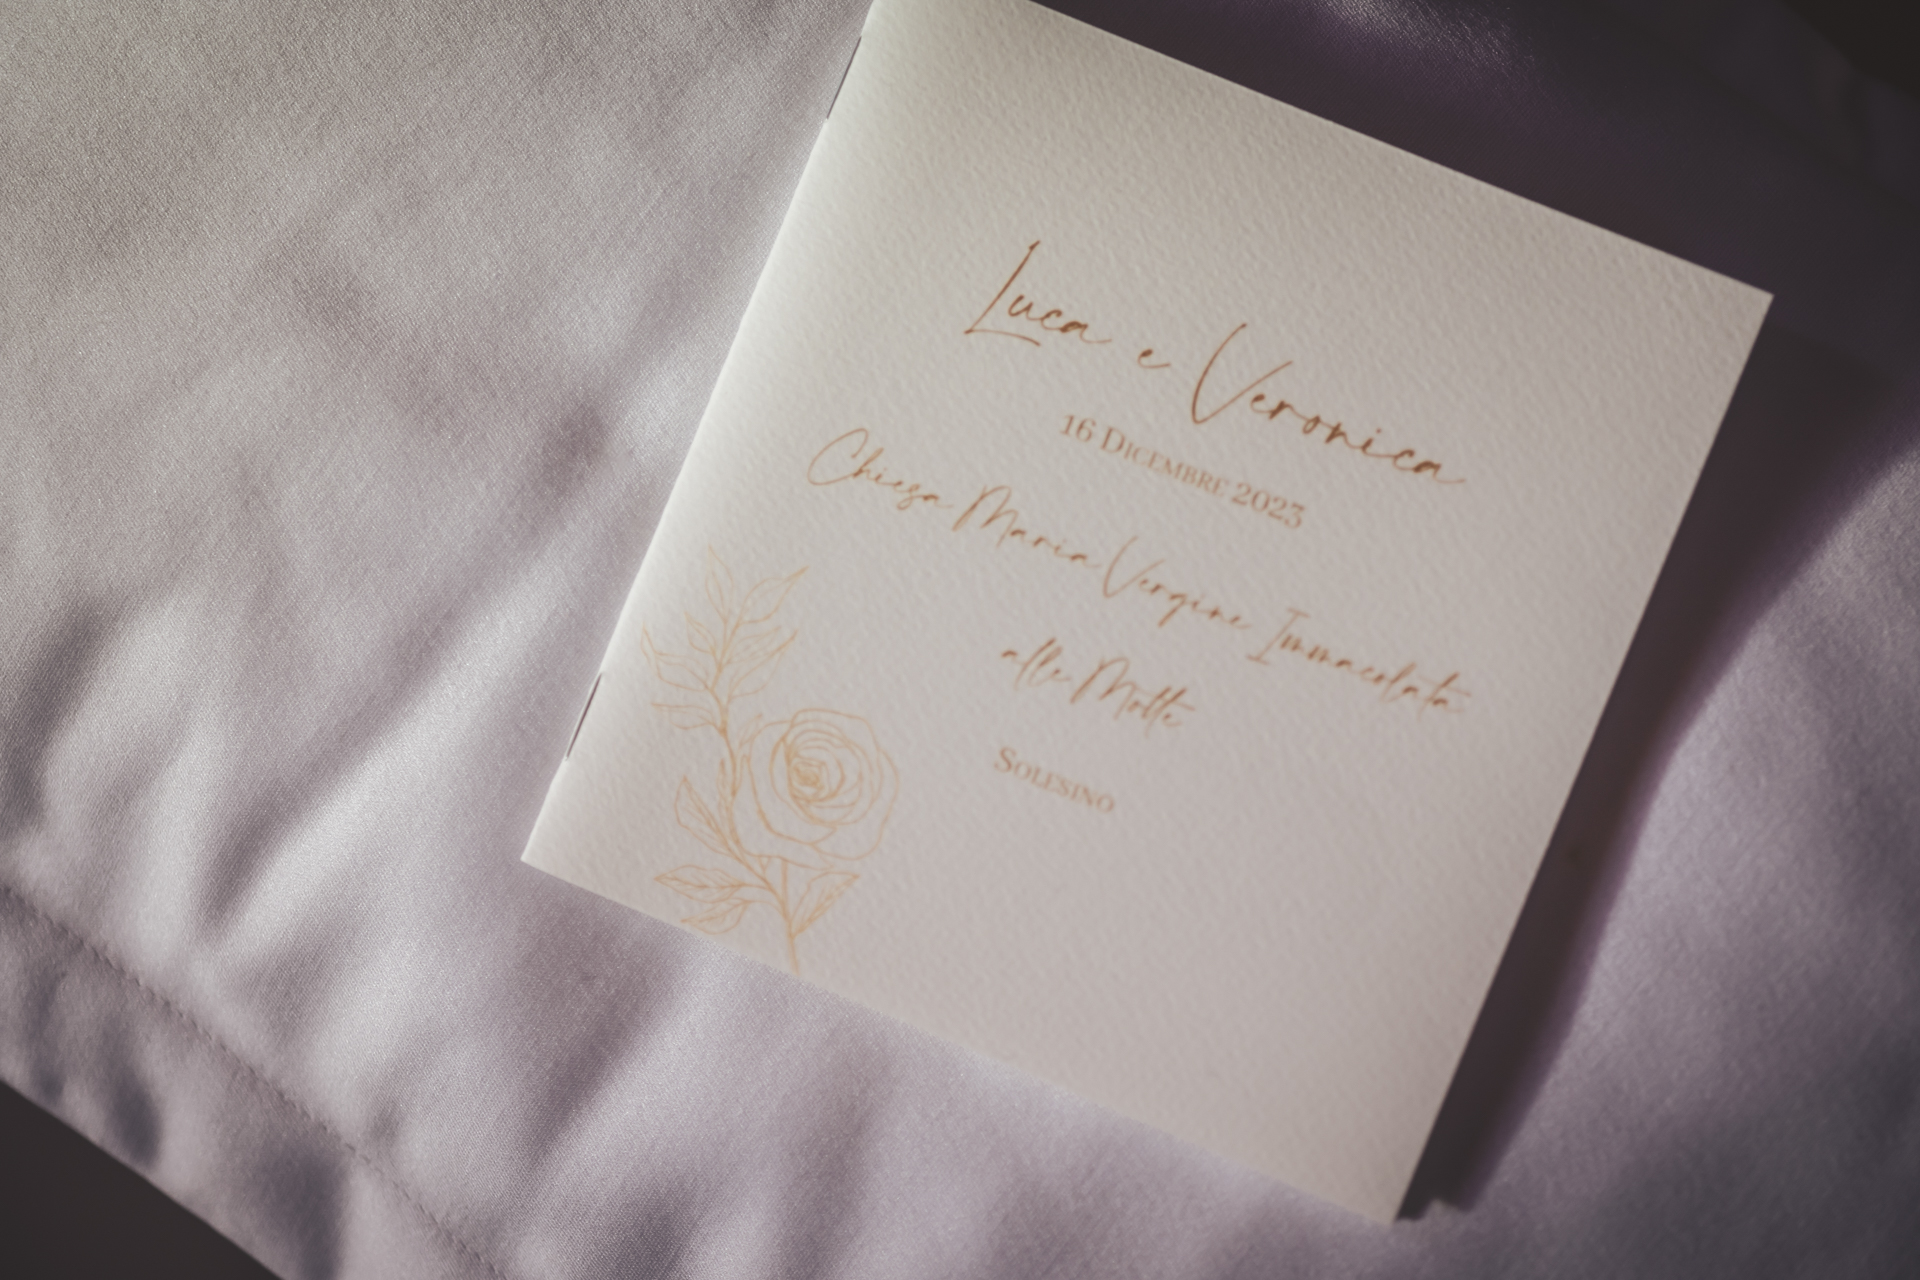 Luca e Veronica
16 Dicembre 2023
Chiesa Maria Vergine Immacolata
alle Motte
Solesino